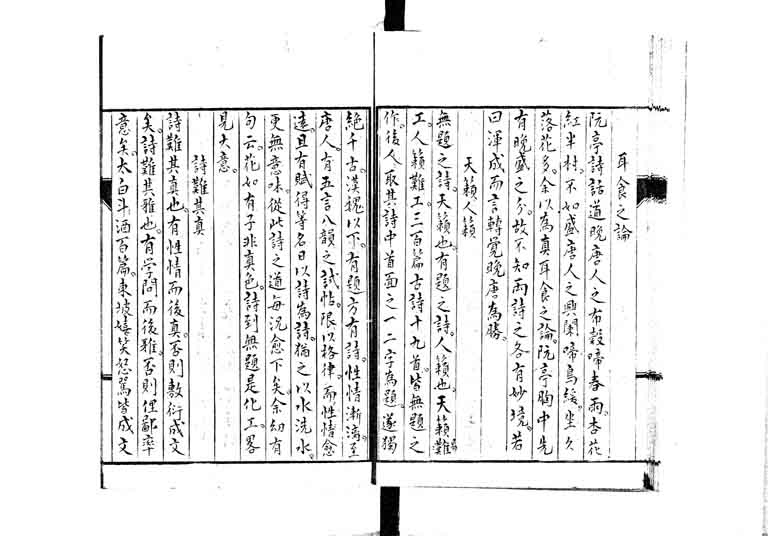 耳食之論
阮亭詩話道晚唐人之布穀啼春雨。杏花
紅半村。不如盛唐人之興闌啼鳥緩。坐久
落花多。余以為真耳食之論。阮亭胸中先
有晚盛之分。故不知兩詩之各有妙境。若
曰渾成而言轉覺晚唐為勝。
天籟人籟
無題之詩。天籟也。有題之詩。人籟也。天籟難
工。人籟難工。三百篇古詩十九首。皆無題之
作。後人取其詩中首面之一二字為題。遂獨
絕千古。漢魏以下。有題方有詩。性情漸漓。至
唐人。有五言八韻之試帖。限以格律。而性情愈
遠。且有賦得等名目以詩為詩。猶之以水洗水。
更無意味。從此詩之道每況愈下矣。余幼有
句云。花如有子非真色。詩到無題是化工。略
見大意。
詩難其真
詩難其真也。有性情而後真。否則敷衍成文
矣。詩難其雅也。有学問而後雅。否則俚鄙率
意矣。太白斗酒百篇。東坡嬉笑怒罵皆成文